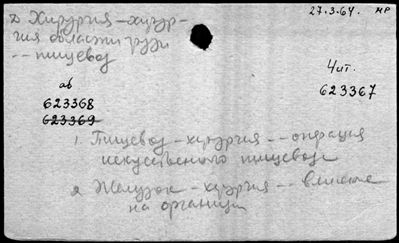 27.3.64. мр
2 Хирургия – хирур-
гия области груди
-- пищевод
Чит.
аб
623367
623368
623369
1. Пищевод – хирургия -- операция
искуственного пищевода
2. Желудок – хирургия -- влияние
на организм